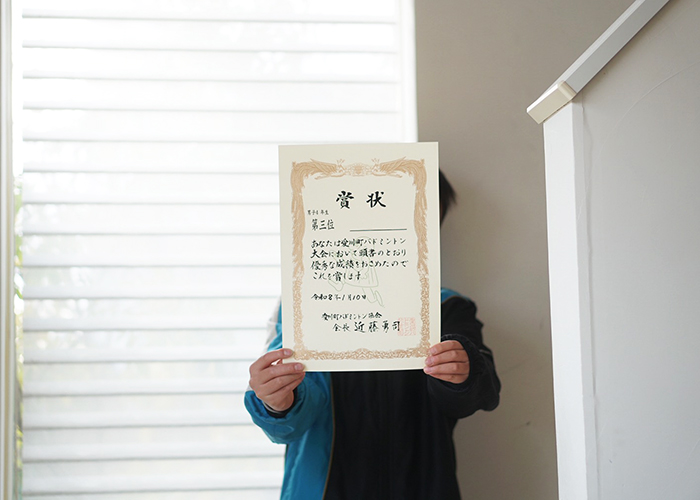 賞状
第三位
あなたは愛川町バドミントン
大会において頭書のとおり
優秀な成績をおさめたので
これを賞します
令和8年1月10日
愛川町バドミントン協会
会長 近藤勇司